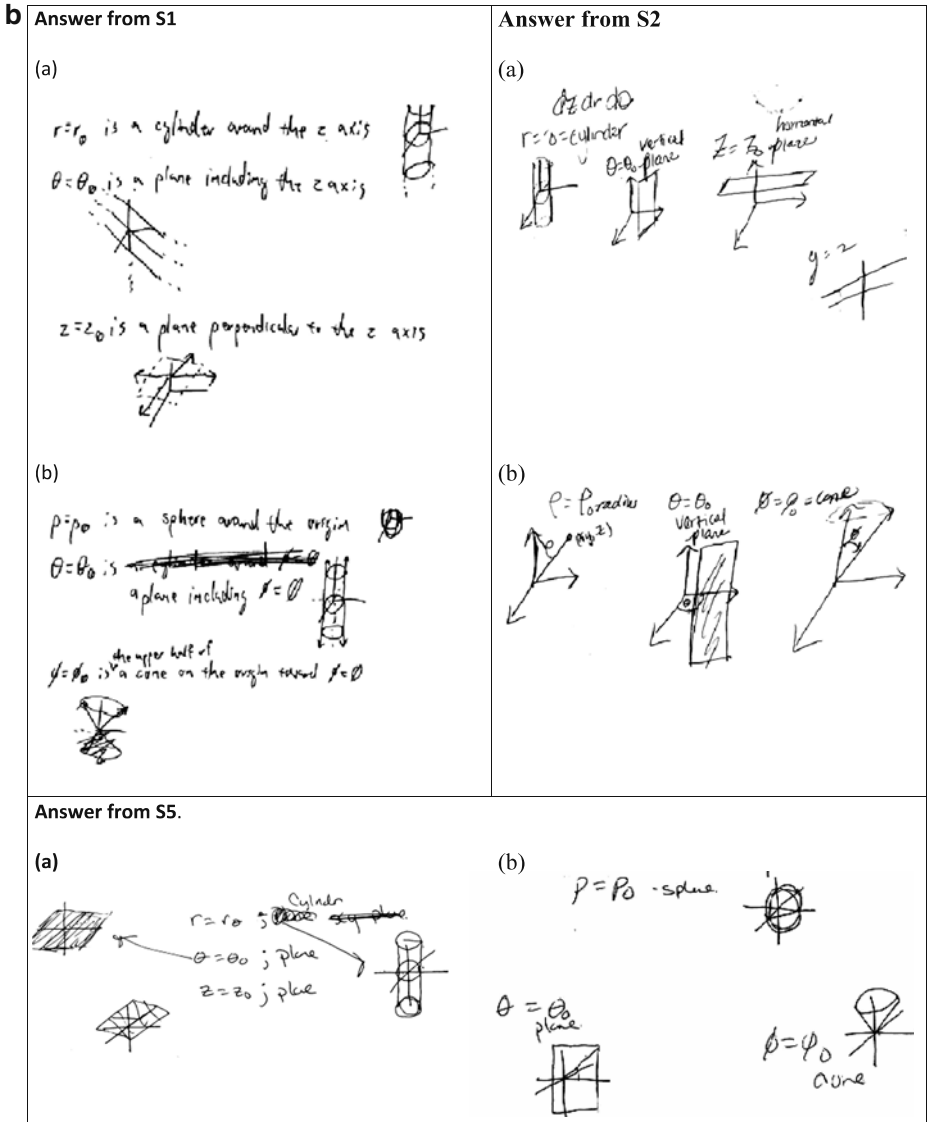 b
Answer from S1
(a)
r=r₀ is a cylinder around the z axis
θ=θ₀ is a plane including the z axis
z=z₀ is a plane perpendicular to the z axis
(b)
ρ=ρ₀ is a sphere around the origin
θ=θ₀ is
a plane including ϕ=0
the upper half of
ϕ=ϕ₀ is a cone on the origin toward ϕ=0
Answer from S2
(a)
dz dr dθ
r=r₀=cylinder
θ=θ₀ vertical plane
Z=Z₀ horizontal plane
y=2
(b)
ρ=ρ₀ radius
(x,y,z)
ρ
θ=θ₀
vertical
plane
θ
ϕ=ϕ₀=cone
ϕ
Answer from S5.
(a)
r=r₀ ; Cylinder
θ=θ₀ ; plane
z=z₀ ; plane
(b)
ρ=ρ₀ - sphere
θ=θ₀
plane
ϕ=φ₀
cone